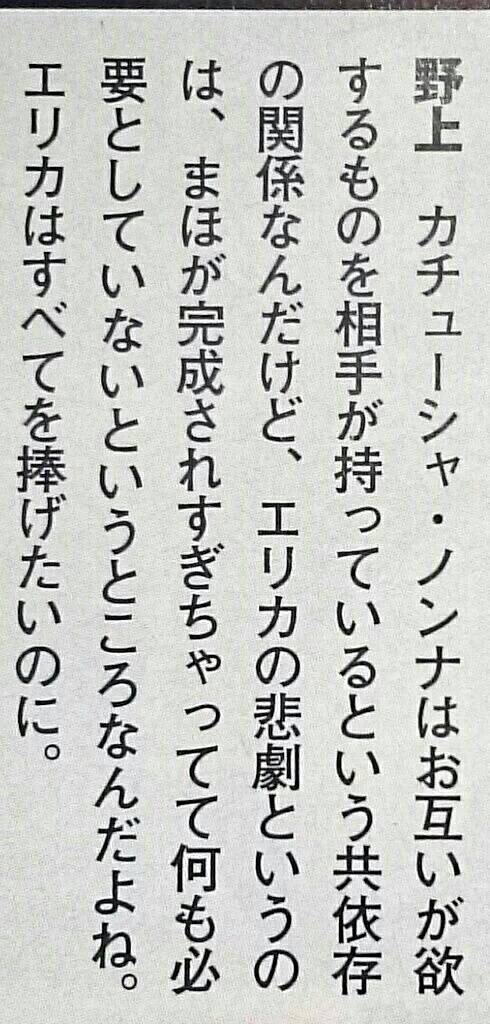 野上　カチューシャ・ノンナはお互いが欲
するものを相手が持っているという共依存
の関係なんだけど、エリカの悲劇というの
は、まほが完成されすぎちゃってて何も必
要としていないというところなんだよね。
エリカはすべてを捧げたいのに。